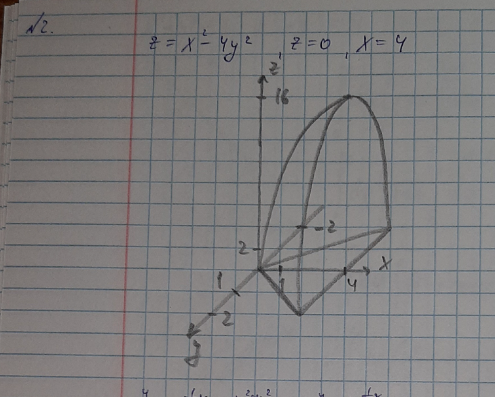 √2.
z = x² - 4y², z = 0, x = 4
z
16
-2
2
x
1
1
4
2
y